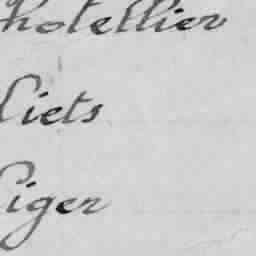 hotellier
Ciets
Ciger